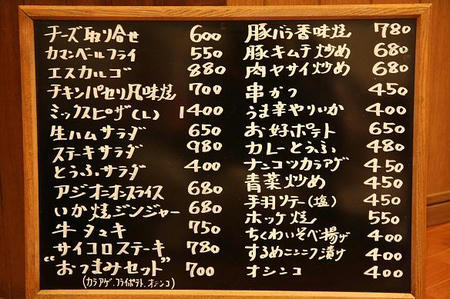 チーズ取り合せ 600
カマンベールフライ 550
エスカルゴ 880
チキンパセリ風味焼 700
ミックスピザ(L) 1400
生ハムサラダ 650
ステーキサラダ 980
とうふサラダ 400
アジオニオンスライス 680
いか焼ジンジャー 680
牛タタキ 750
サイコロステーキ 780
"おつまみセット" 700
(カラアゲ、フライポテト、オシンコ)
豚バラ香味焼 780
豚キムチ炒め 680
肉ヤサイ炒め 680
串かつ 450
うま辛やりいか 400
お好ポテト 650
カレーとうふ 480
ナンコツカラアゲ 450
青菜炒め 450
手羽ソテー(塩) 450
ホッケ焼 550
ちくわいそべ揚げ 400
するめニンニク漬け 400
オシンコ 400